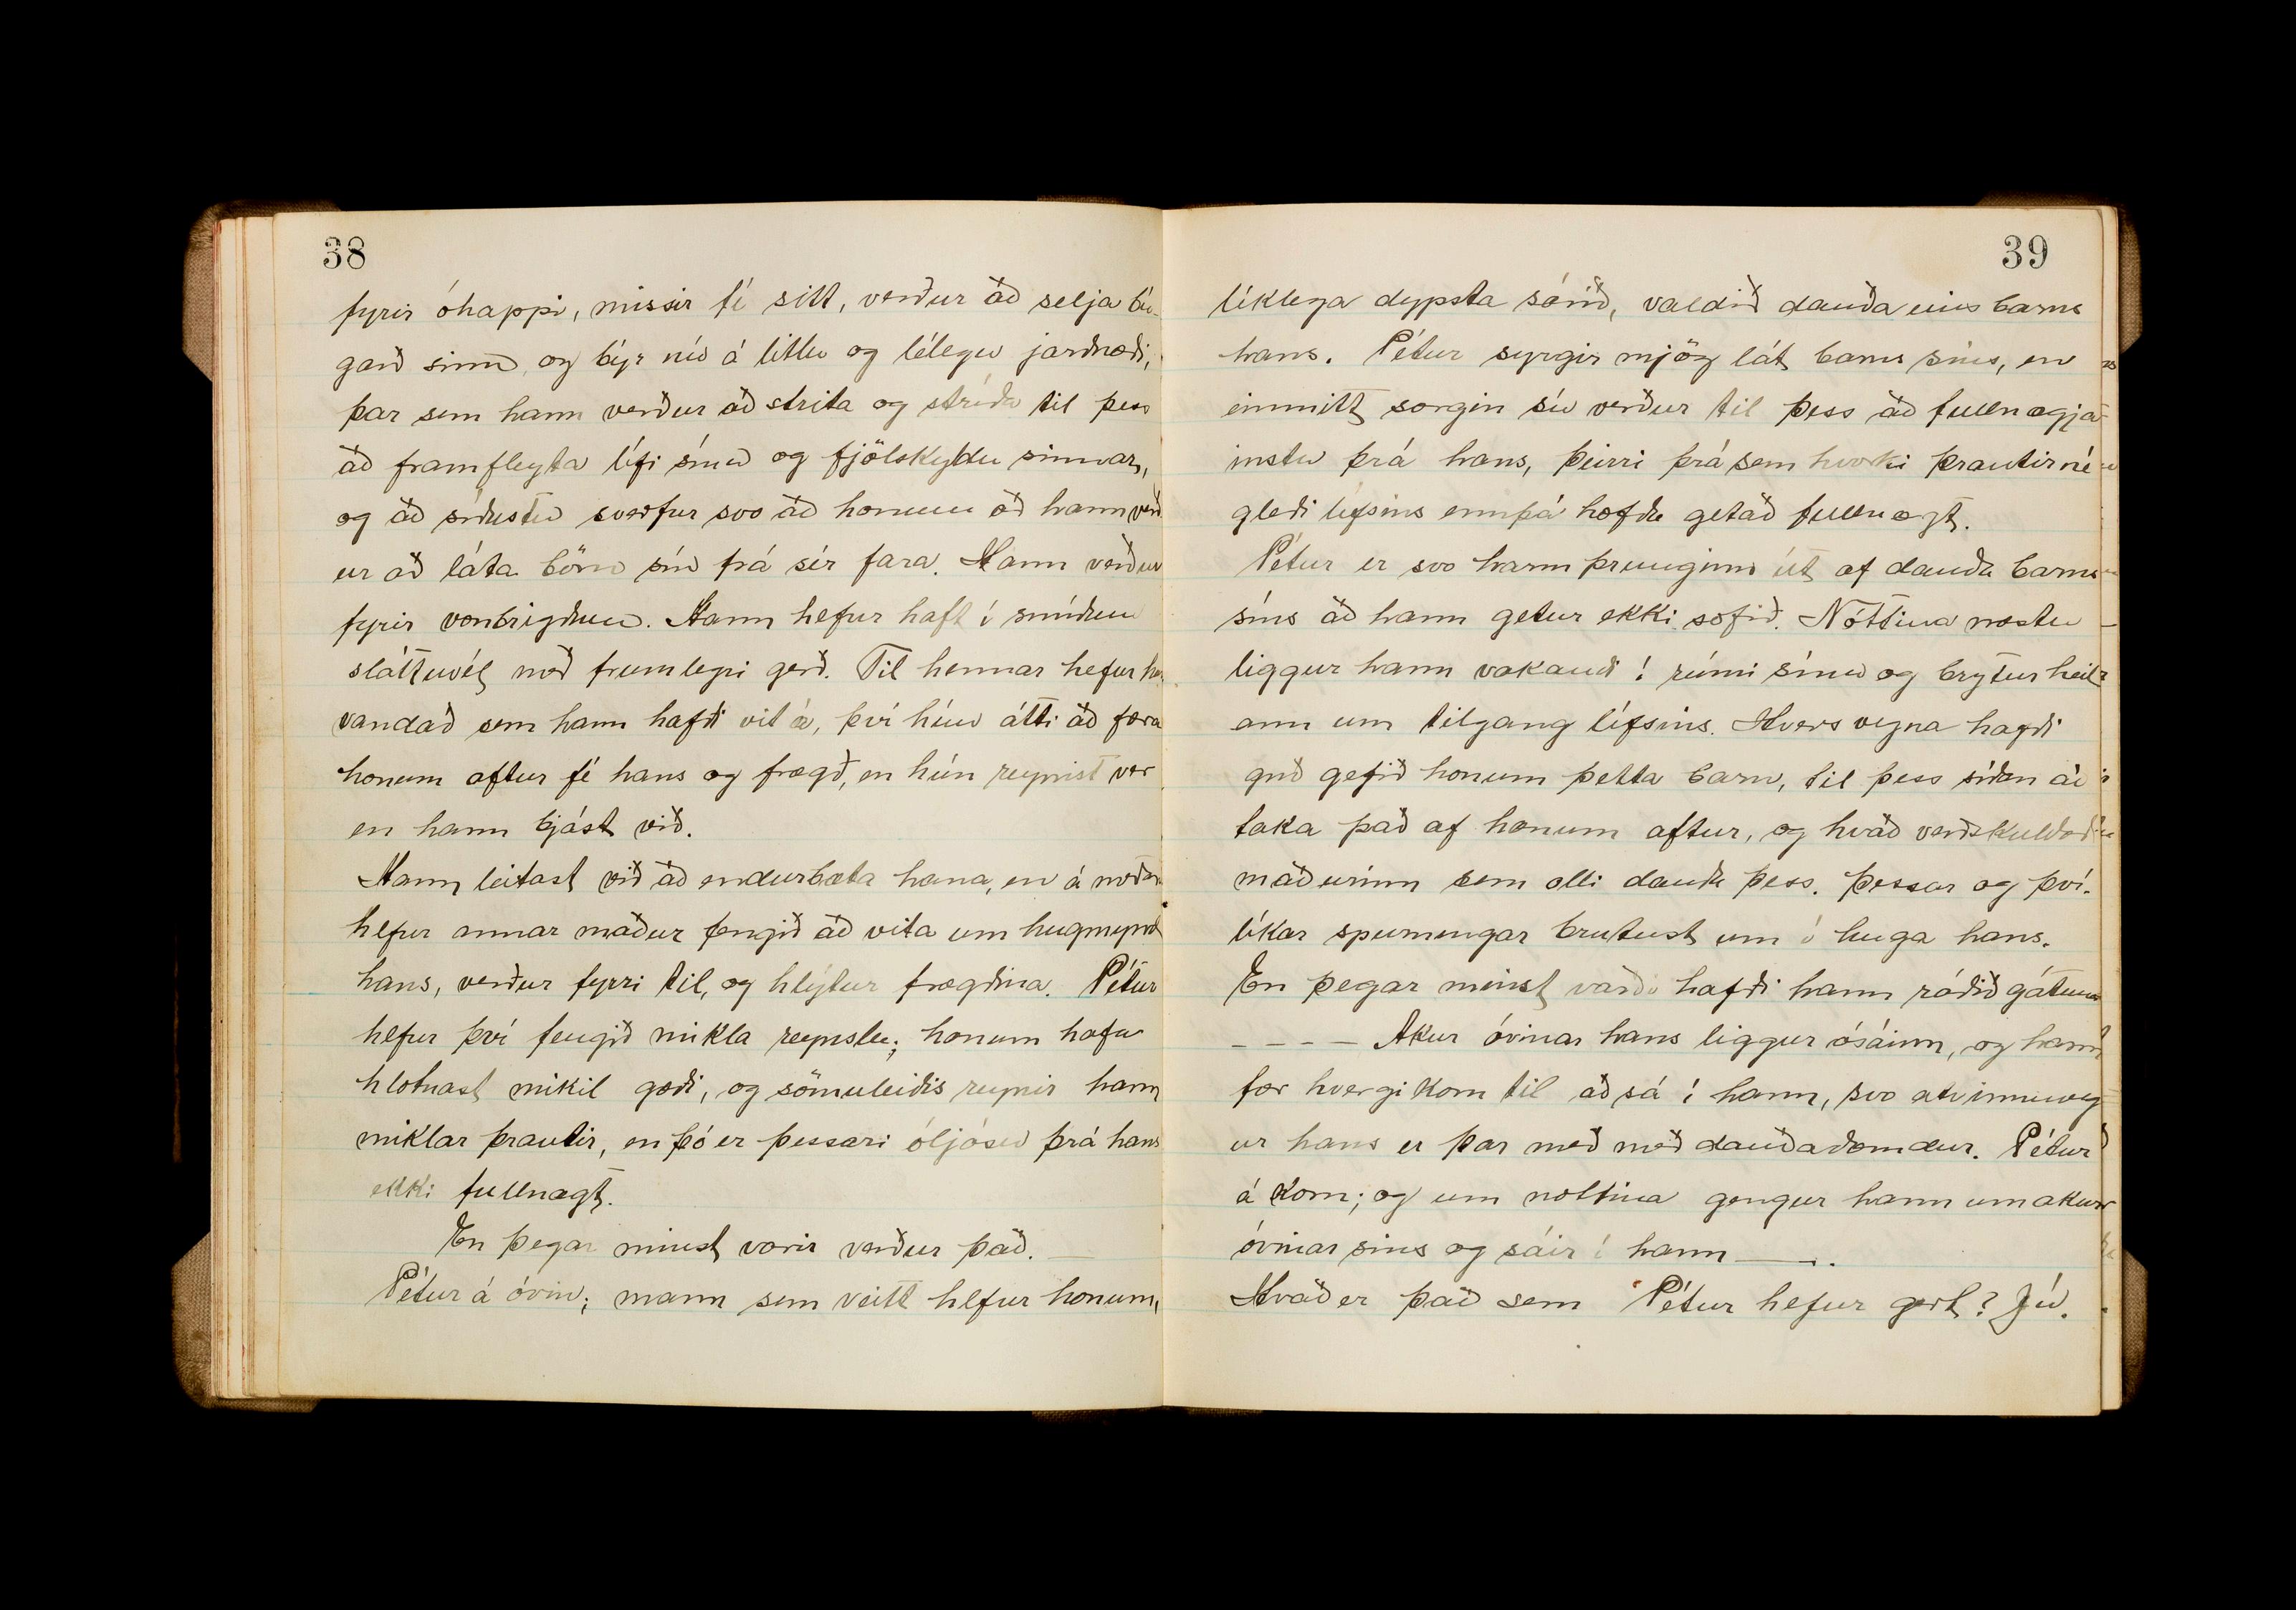 38
fyrir óhappi, missir fé sitt, verður að selja bú-
garð sinn, og býr nú á litlu og lélegu jarðnæði,
þar sem hann verður að strita og stríða til þess
að framfleyta lífi sínu og fjölskyldu sinnar,
og að síðustu sverfur svo að honum að hann verð
ur að láta börn sín frá sér fara. Hann verður
fyrir vonbrigðum. Hann hefur haft í smíðum
sláttuvél með frumlegri gerð. Til hennar hefur
vandað sem hann hafði vit á, því hún átti að færa
honum aftur fé hans og frægð, en hún reynist ver
en hann bjást við.
Hann leitast við að endurbæta hana, en á meðan
hefur annar maður fengið að vita um hugmynd
hans, verður fyrri til, og hlýtur frægðina. Pétur
hefur því fengið mikla reynslu; honum hafa
hlotnast mikil gæði, og sömuleiðis reynir hann
miklar þrautir, en þó er þessari óljósu þrá hans
ekki fullnægt.
En þegar minst varir verður það. —
Pétur á óvin; mann sem veitt hefur honum,
39
líklega dypsta sárið, valdið dauða eins barns
hans. Pétur syrgir mjög lát barns síns, en
einmitt sorgin sú verður til þess að fullnægja
instu þrá hans, þeirri þrá sem hvorki þrautir né
gleði lífsins ennþá hæfðu getað fullnægt.
Pétur er svo harmþrunginn út af dauða barns
síns að hann getur ekki sofið. Nóttina næstu
liggur hann vakandi í rúmi sínu og brýtur heil-
ann um tilgang lífsins. Hvers vegna hagði
guð gefið honum þetta barn, til þess síðan að
taka það af honum aftur, og hvað verðskuldaði
maðurinn sem olli dauða þess. Þessar og því-
líkar spurningar brutust um í huga hans.
En þegar minst varði hafði hann ráðið gátuna
- - - - Akur óvinar hans liggur ósáinn, og hann
fær hvergi korn til að sá í hann, svo atvinnuveg
ur hans er þar með með dauðadæmdur. Pétur
á korn; og um nottina gengur hann um akur
óvinar sins og sáir í hann —.
Hvað er það sem Pétur hefur gert? Jú.